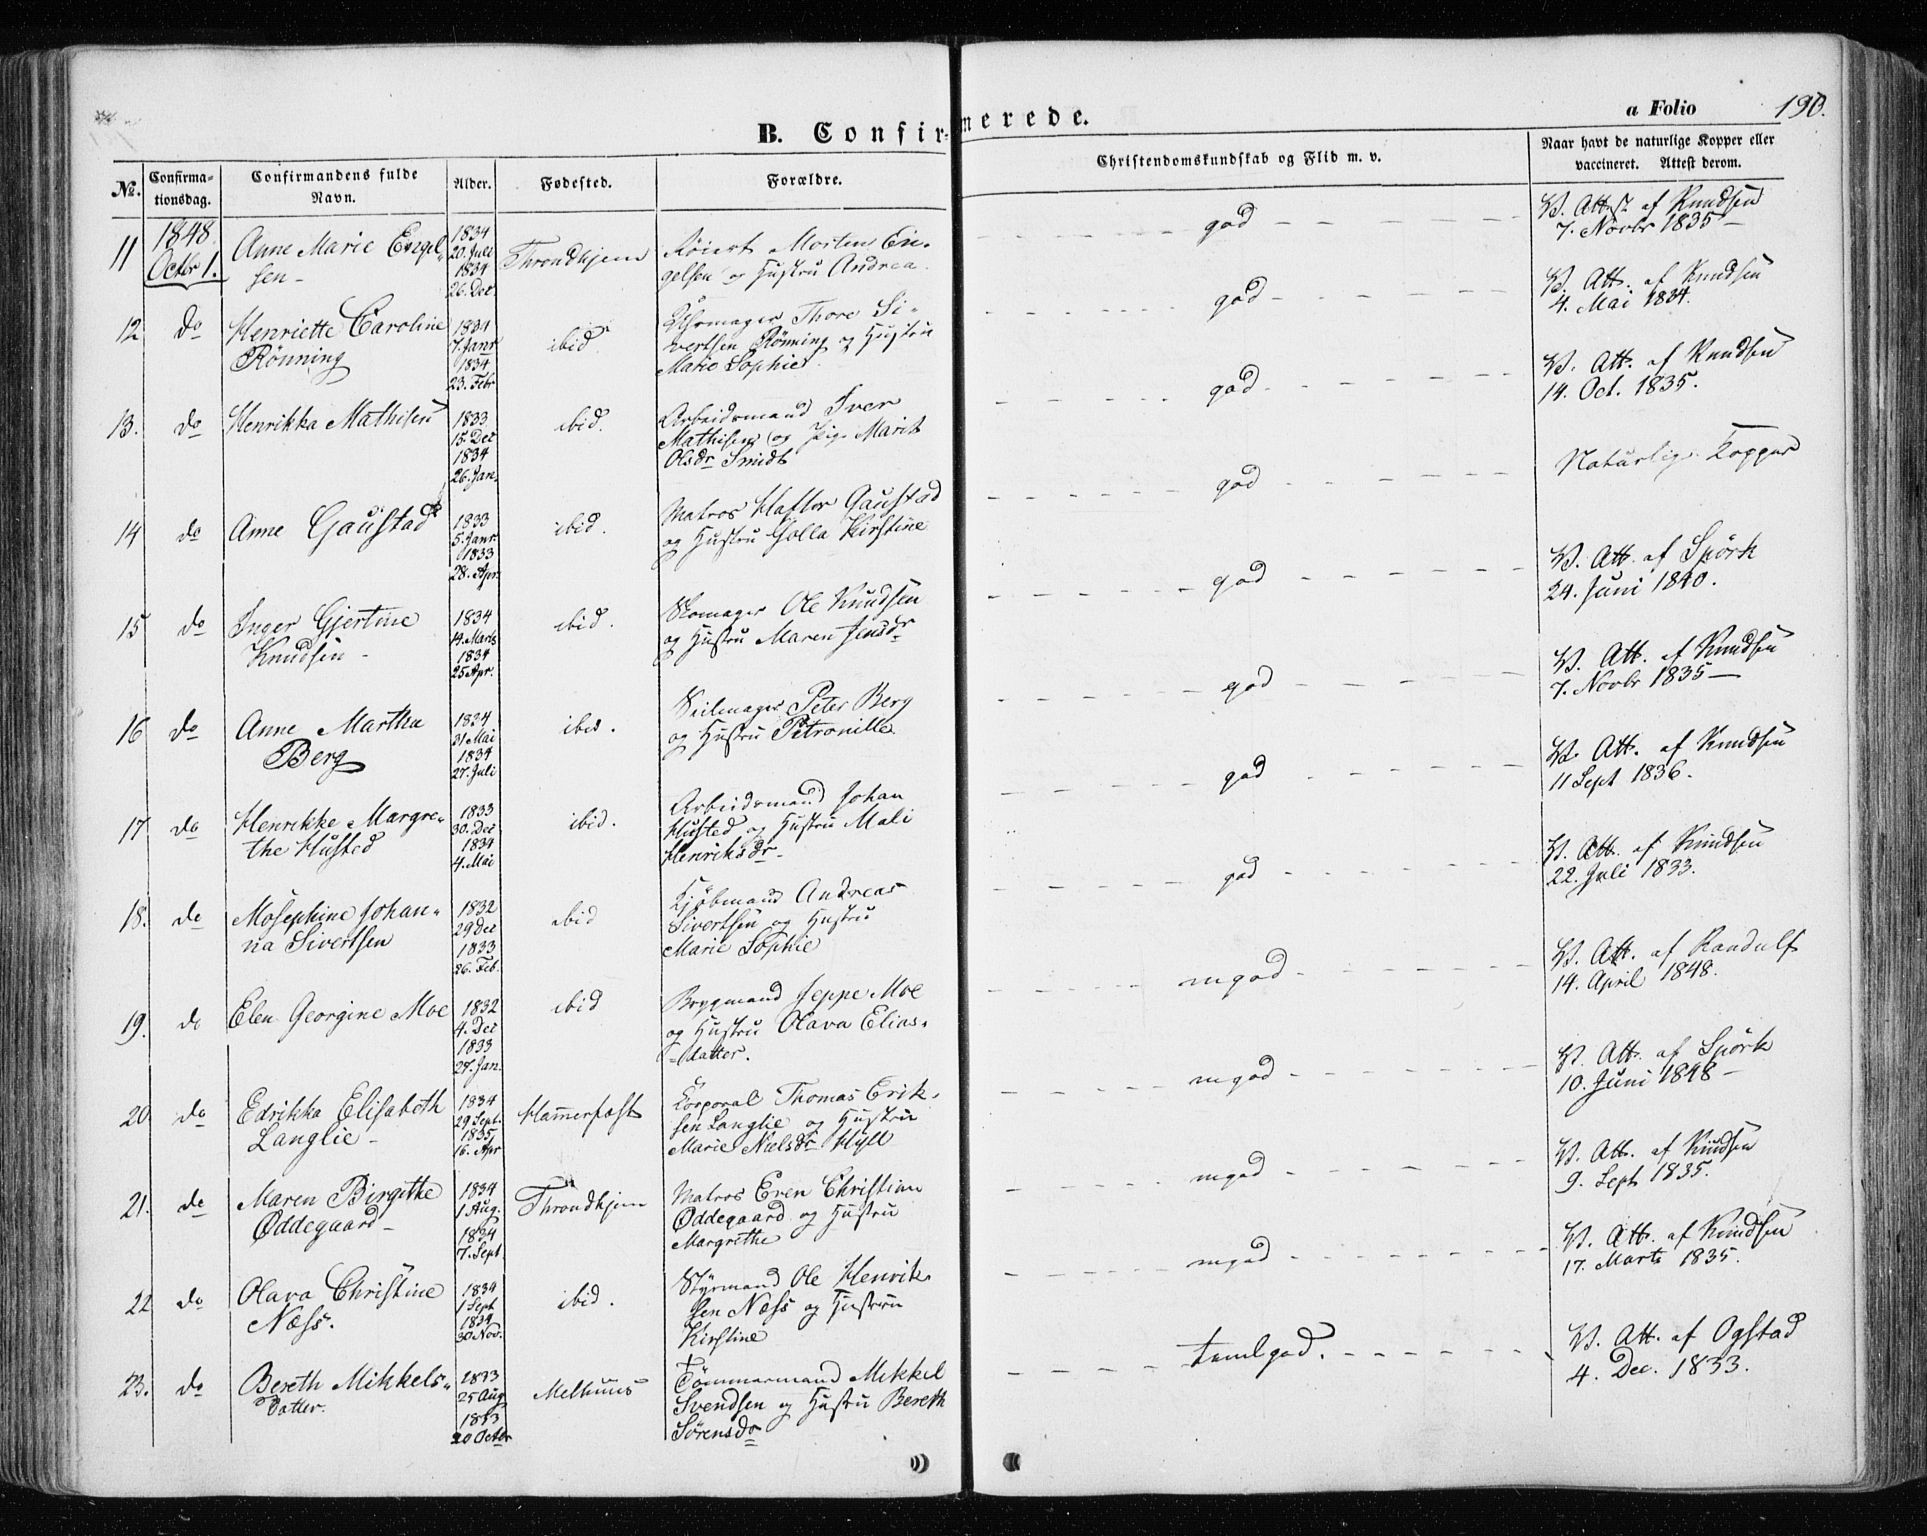 B. Confirmerede.
a Folio 190.
No. Confirmationsdag. Confirmandens fulde Navn. Alder. Fødested. Forældre. Christendomskundskab og Flid m. v. Naar havt de naturlige Kopper eller vaccineret. Attest derom.
11 1848 Octbr 1. Anne Marie Engel-
sen - 1834 20. Juli 1834 26. Dec Throndhjem Morten En-
gelsen og Hustru Andrea god V. Attst. af Knudsen
7. Novbr 1835 -
12 do Henriette Caroline
Rönning 1834 7. Janr 1834 23. Febr ibid. Uhrmager Thore Si-
vertsen Rönning og Hustru
Marie Sophie god V. Att. af Knudsen
4. Mai 1834.
13. do Henrikka Mathisen 1833 15. Dec 1834 26. Jan. ibid. Arbeidsmand Iver
Mathisen og Pige Marit
Olsdr Smidt god V. Att. af Knudsen
14. Oct. 1835.
14 do Anne Gaustad 1833 5. Janr 1833 28. Apr. ibid. Matros Haftor Gaustad
og Hustru Golla Kirstine god Naturlige Kopper
15 do Inger Gjertine
Knudsen - 1834 14. Marts 1834 25 Apr. ibid. Skomager Ole Knudsen
og Hustru Maren Jensdr god V. Att. af Spörk
24. Juni 1840.
16 do Anne Martha
Berg 1834 31 Mai 1834 27. Juli ibid. Seilmager Peter Berg
og Hustru Petronille god V. Att. af Knudsen
7. Novbr 1835 -
17 do Henrikke Margre-
the Husted 1833 30. Dec 1834 4. Mai ibid. Arbeidsmand Johan
Husted og Hustru Mali
Henriksdr - god V. Att. af Knudsen
11 Sept 1836.
18. do Mosephine Johan-
na Sivertsen 1832 29 Dec 1833 26. Feb. ibid Kjöbmand Andreas
Sivertsen og Hustru
Marie Sophie god V. Att. af Knudsen
22. Juli 1833.
19. do Elen Georgine Moe 1832 4. Dec 1833 27. Jan. ibid Brygmand Jeppe Moe
og Hustru Olava Elias-
datter. mgod V. Att. af Randulf
14. April 1848.
20 do Edrikka Elisabeth
Langlie - 1834 29 Sept. 1835 16. Apr Hamerfest Korporal Thomas Erik-
sen Langlie og Hustru
Marie Nielsdr Hyll mgod V. Att. af Spörk
10. Juni 1848 -
21. do Maren Birgithe
Øddegaard - 1834 1 Aug. 1834 7. Sept Throndhjem Matros Even Christian
Øddegaard og Hustru
Margrethe mgod V. Att. af Knudsen
9. Sept 1835.
22 do Olava Christine
Næss. 1834 1 Sept 1834 30 Nov. ibid. Styrmand Ole Henrik-
sen Næss og Hustru
Kirstine mgod V. Att. af Knudsen
17. Marts 1835.
23. do Bereth Mikkels-
datter. 1833 25 Aug 1833 20 Octbr Melhuus Tömmermand Mikkel
Svendsen og Hustru Bereth
Sörensdr temlgod. V. Att. af Ogstad
4. Dec. 1833.